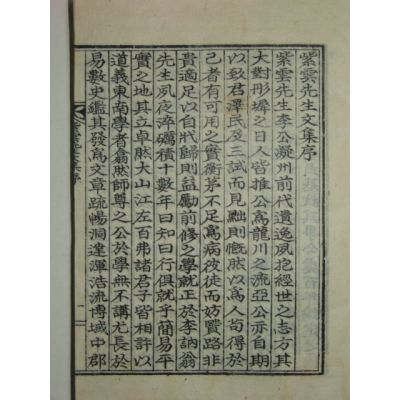 紫雲先生文集序
紫雲先生李公凝州前代遺逸夙抱經世之志方其
大對彤墀之日人皆推公爲龍川之流亞公亦自期
以致君澤民及三試而見黜則慨然以爲人苟得於
己者有可用之實衡茅不足爲病彼徒而妨賢路非
貴適足以自戕歸則益勵前修之學於李訥翁
先生夙夜淬礪積十數年曰知曰行俱就乎簡易平
實之地其立卓然大山江左百弗諸君子皆相許以
道義東南學者翕然師尊之公於學無不講尤長於
易數史鑑其發爲文章疏暢洞達渾浩流博域中郡